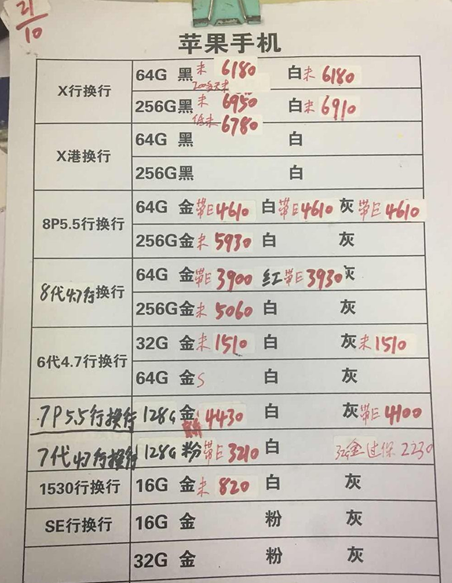 21/10
苹果手机
X行换行 64G 黑 未 6180 白 未 6180
256G 黑 未 6950 白 未 6910
低未 6780
X港换行 64G 黑 白
256G 黑 白
8P5.5行换行 64G 金 带E 4610 白 带E 4610 灰 带E 4610
256G 金 未 5930 白 灰
8代4.7行换行 64G 金 带E 3900 红 带E 3930 灰
256G 金 未 5060 白 灰
6代4.7行换行 32G 金 未 1510 白 灰 未 1510
64G 金 S 白 灰
7P5.5行换行 128G 金 4430 白 灰 带E 4100
7代4.7行换行 128G 粉 带E 3210 白 32金 过保 2230
1530行换行 16G 金 未 820 白 灰
SE行换行 16G 金 粉 灰
32G 金 粉 灰